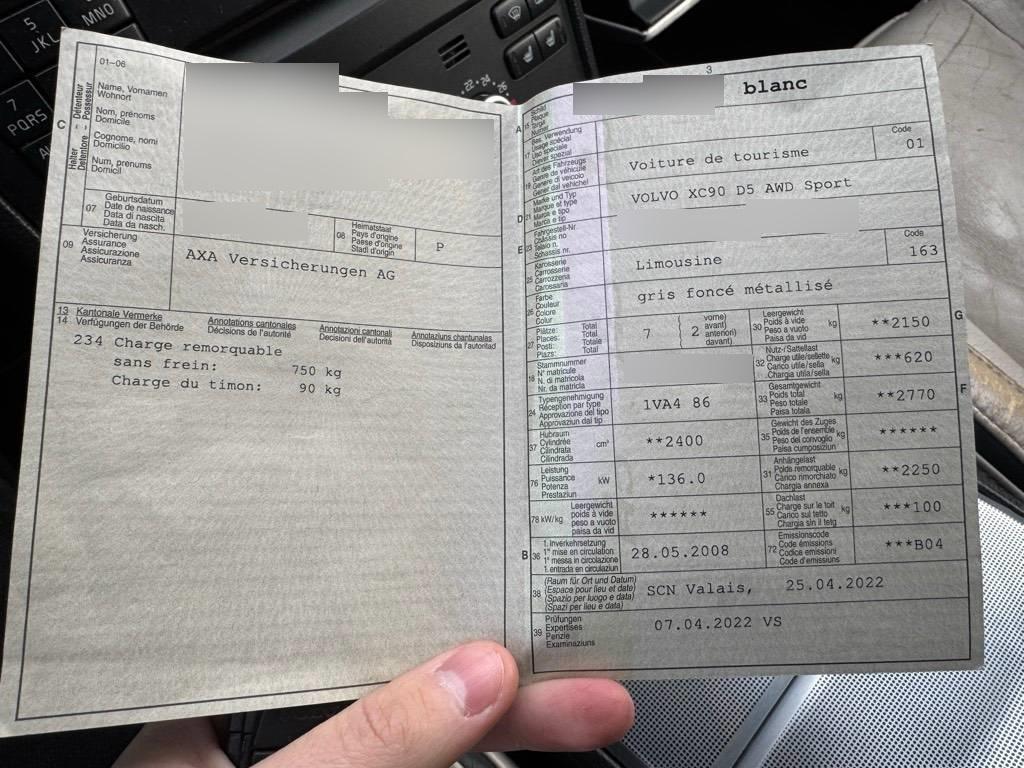 5
JKL
MNO
7
PQRS
22 • 24 • 26
01–06
C
Halter
Detentore
Détenteur
Possessur
Name, Vornamen
Wohnort
Nom, prénoms
Domicile
Cognome, nomi
Domicilio
Num, prenums
Domicil
07
Geburtsdatum
Date de naissance
Data di nascita
Data da nasch.
08
Heimatstaat
Pays d'origine
Paese d'origine
Stadi d'origin
P
09
Versicherung
Assurance
Assicurazione
Assicuranza
AXA Versicherungen AG
13 Kantonale Vermerke
14 Verfügungen der Behörde
Annotations cantonales
Décisions de l'autorité
Annotazioni cantonali
Decisioni dell'autorità
Annotaziuns chantunalas
Disposiziuns da l'autoritad
234 Charge remorquable
sans frein: 750 kg
Charge du timon: 90 kg
3
A
15
Schild
Plaque
Targa
blanc
17
Bes. Verwendung
Usage spécial
Uso speciale
Diever spezial
19
Art des Fahrzeugs
Genre de véhicule
Genere di veicolo
Gener dal vehichel
Voiture de tourisme
Code
01
D
21
Marke und Typ
Marque et type
Marca e tipo
Marca e tip
VOLVO XC90 D5 AWD Sport
E
23
Fahrgestell-Nr.
Châssis no
Telaio n.
Schassis nr.
25
Karosserie
Carrosserie
Carrozzeria
Carossaria
Limousine
Code
163
26
Farbe
Couleur
Colore
Colur
gris foncé métallisé
27
Plätze: Total
Places: Total
Posti: Totale
Plazs: Total
7
2
vorne)
avant)
anteriori)
davant)
30
Leergewicht
Poids à vide
Peso a vuoto
Paisa da vid
kg
**2150
G
18
Stammnummer
N° matricule
N. di matricola
Nr. da matricla
32
Nutz-/Sattellast
Charge utile/sellette
Carico utile/sella
Chargia utila/sella
kg
***620
24
Typengenehmigung
Réception par type
Approvazione del tipo
Approvaziun dal tip
1VA4 86
33
Gesamtgewicht
Poids total
Peso totale
Paisa totala
kg
**2770
F
37
Hubraum
Cylindrée
Cilindrata
Cilindrada
cm³
**2400
35
Gewicht des Zuges
Poids de l'ensemble
Peso del convoglio
Paisa cumposiziun
kg
******
76
Leistung
Puissance
Potenza
Prestaziun
kW
*136.0
31
Anhängelast
Poids remorquable
Carico rimorchiato
Chargia annexa
kg
**2250
78 kW/kg
Leergewicht
poids à vide
peso a vuoto
paisa da vid
******
55
Dachlast
Charge sur le toit
Carico sul tetto
Chargia sin il tetg
kg
***100
B
36
1. Inverkehrsetzung
1re mise en circulation
1a messa in circolazione
1. entrada en circulaziun
28.05.2008
72
Emissionscode
Code émissions
Codice emissioni
Code d'emissiuns
***B04
38
(Raum für Ort und Datum)
(Espace pour lieu et date)
(Spazio per luogo e data)
(Spazi per lieu e data)
SCN Valais, 25.04.2022
39
Prüfungen
Expertises
Perizie
Examinaziuns
07.04.2022 VS